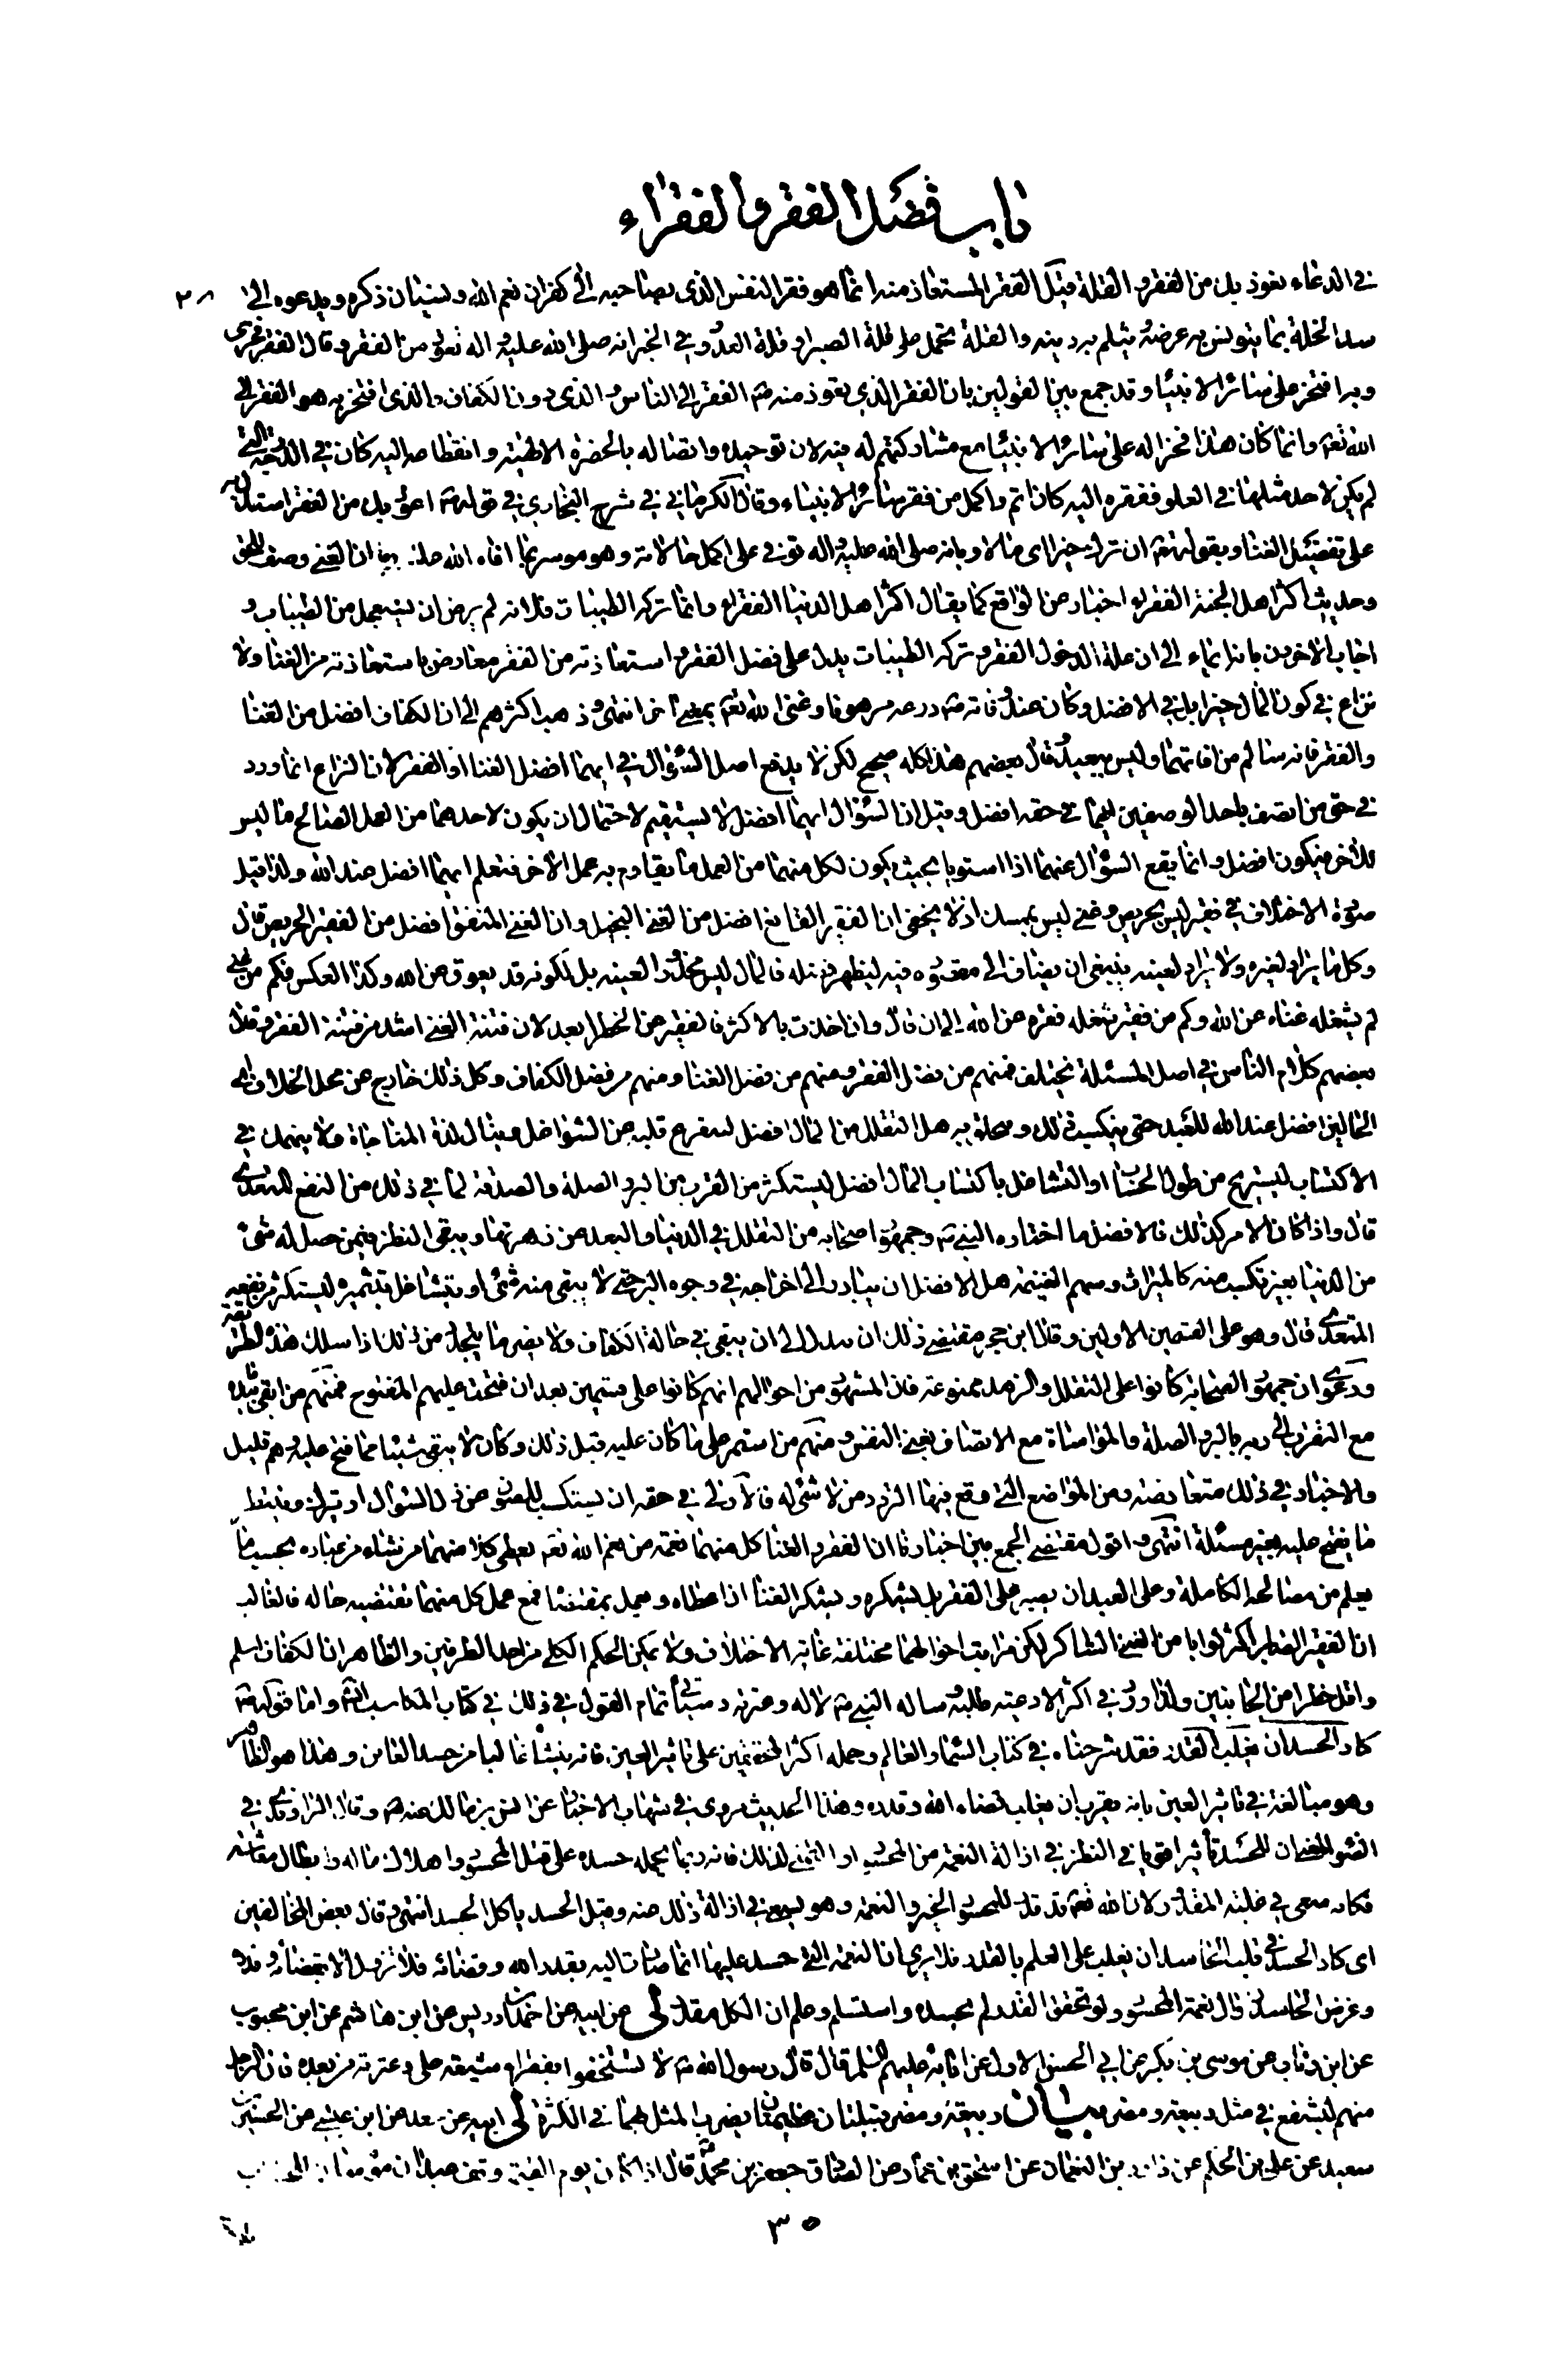 باب فضل الفقر والفقراء
في الدعاء نعوذ بك من الفقر والقلة قيل الفقر المستعاذ منه انما هو فقر النفس الذي بصاحبه الى كفران نعم الله ونسيان ذكره ويدعوه الى
٢٨
سد الخلة بما يتدنس به عرضه ويثلم به دينه والقلة تحمل على قلة الصبر او قلة العدد وفي الخبر انه صلى الله عليه واله تعوذ من الفقر وقال الفقر فخرى
وبه افتخر على سائر الانبياء وقد جمع بين القولين بان الفقر الذي تعوذ منه ص الفقر الى الناس والذي دون الكفاف والذي افتخر به هو الفقر الى
الله تعالى وانما كان هذا فخرا له على سائر الانبياء مع مشاركتهم له فيه لان توحيده واتصاله بالحضرة الالهية وانقطاعه اليه كان في الدرجة التي
لم يكن لاحد مثلها في العلو ففقره اليه كان اتم واكمل من فقر سائر الانبياء وقال الكرماني في شرح البخاري في قوله ص اعوذ بك من الفقر استدل به
على تفضيل الغنا وبقوله تعالى ان ترك خيرا اي مالا وبانه صلى الله عليه واله توفى على اكمل حالاته وهو موسر بما افاء الله عليه وبان الغنى وصف للحق
وحديث اكثر اهل الجنة الفقراء اخبار عن الواقع كما يقال اكثر اهل الدنيا الفقراء واما تركه الطيبات فلانه لم يرض ان يستعجل من الطيبات و
اجاب الاخرون بانه ايماء الى ان علة الدخول الفقر وتركه الطيبات يدل على فضل الفقر واستعاذته من الفقر معارض باستعاذته من الغنا ولا
نزاع في كون المال خيرا بل في الافضل وكان عند وفاته ص درعه مرهونا وغنى الله تعالى بمعنى اخر انتهى وذهب اكثرهم الى ان الكفاف افضل من الغنا
والفقر فانه سالم من افاتهما وليس ببعيد وقال بعضهم هذا كله صحيح لكن لا يدفع اصل السؤال في ايهما افضل الغنا او الفقر لان النزاع انما ورد
في حق من اتصف باحد الوصفين ايهما في حقه افضل وقيل ان السؤال ايهما افضل لا يستقيم لاحتمال ان يكون لاحدهما من العمل الصالح ما ليس
للآخر فيكون افضل وانما يقع السؤال عنهما اذا استويا بحيث يكون لكل منهما من العمل ما يقاوم به عمل الآخر فتعلم ايهما افضل عند الله ولذا قيل
صورة الاختلاف في فقير ليس بحريص وغنى ليس بممسك اذ لا يخفى ان الفقير القانع افضل من الغنى البخيل وان الغنى المنفق افضل من الفقير الحريص قال
وكل ما يراد لغيره ولا يراد لعينه ينبغي ان يضاف الى مقصوده فيه ليظهر فضله فالمال ليس محذورا لعينه بل لكونه قد يعوق عن الله وكذا العكس فكم من غنى
لم يشغله غناه عن الله وكم من فقير شغله فقره عن الله الى ان قال وان اخذت بالاكثر فالفقير عن الخطر ابعد لان فتنة الغنى اشد من فتنة الفقر وقال
بعضهم كلام الناس في اصل المسئلة يختلف فمنهم من فضل الفقر ومنهم من فضل الغنا ومنهم من فضل الكفاف وكل ذلك خارج عن محل الخلاف اي
الحالين افضل عند الله للعبد حتى يتكسب ذلك ويتخلق به هل التقلل من المال افضل ليتفرغ قلبه عن الشواغل وينال لذة المناجاة ولا ينهمك في
الاكتساب ليستريح من طول الحساب او التشاغل باكتساب المال افضل ليستكثر من القرب من البر والصلة والصدقة لما في ذلك من النفع المتعدى
قال واذا كان الامر كذلك فالافضل ما اختاره النبي ص وجمهور اصحابه من التقلل في الدنيا والبعد عن زهرتها ويبقى النظر فيمن حصل له شئ
من الدنيا بغير تكسب منه كالميراث وسهم الغنيمة هل الافضل ان يبادر الى اخراجه في وجوه البر حتى لا يبقى منه شئ او يتشاغل بتثميره ليستكثر من نفعه
المتعدى قال وهو على القسمين الاولين وقال ابن حجر مقتضى ذلك ان يبذل الى ان يبقى في حالة الكفاف ولا يضره ما يتجدد من ذلك اذا سلك هذه الطريقة
ودعوى ان جمهور الصحابة كانوا على التقلل والزهد ممنوعة فان المشهور من احوالهم انهم كانوا على قسمين بعد ان فتحت عليهم الفتوح فمنهم من ابقى ما بيده
مع التقرب الى ربه بالبر والصلة والمواساة مع الاتصاف بغنى النفس ومنهم من استمر على ما كان عليه قبل ذلك وكان لا يبقى شيئا مما فتح عليه وهم قليل
والاخبار في ذلك متعارضة ومن المواضع التي وقع فيها التردد من لا شئ له فالاولى في حقه ان يستكسب للصون عن ذل السؤال او يترك وينتظر
ما يفتح عليه بغير مسئلة انتهى واقول مقتضى الجمع بين اخبارنا ان الفقر والغنا كل منهما نعمة من نعم الله تعالى يعطى كلا منهما من شاء من عباده بحسب ما
يعلم من مصالحه الكاملة وعلى العبد ان يصبر على الفقر بل يشكره ويشكر الغنا ان اعطاه ويعمل بمقتضاه فمع عمل كل منهما بما تقتضيه حاله فالغالب
ان الفقير الصابر اكثر ثوابا من الغنى الشاكر لكن مراتب احوالهما مختلفة غاية الاختلاف ولا يمكن الحكم الكلى من احد الطرفين والظاهر ان الكفاف اسلم
واقل خطرا من الجانبين ولذا ورد في اكثر الادعية طلبه وساله النبي ص لاله وعترته وسيأتي تمام القول في ذلك في كتاب المكاسب انش واما قوله ص
كاد الحسد ان يغلب القدر فقد شرحناه في كتاب السماء والعالم وحمله اكثر المحققين على تاثير العين فانه ينشأ غالبا من حسد العائن وهذا هو الظاهر
وهو مبالغة في تاثير العين بانه يقرب ان يغلب قضاء الله وقدره وهذا الحديث مروى في شهاب الاخبار عن انس بن مالك عنه ص وقال الراوندى في
الضوء المعنى ان للحسد تأثيرا قويا في النظر في ازالة النعمة من المحسود او التمنى لذلك فانه ربما يحمله حسده على قتل المحسود واهلاك ماله وابطال معاشه
فكانه سعى في غلبة المقدور لان الله تعالى قد قدر للمحسود الخير والنعمة وهو يسعى في ازالة ذلك عنه وقيل الحسد ياكل الجسد انتهى وقال بعض المخالفين
اي كاد الحسد في قلب الحاسد ان يغلب على العلم بالقدر فلا يرى ان النعمة التي حسد عليها انما صارت اليه بقدر الله وقضائه فلا تزول الا بقضائه وقدره
وغرض الحاسد زوال نعمة المحسود ولو تحقق القدر لم يحسده واستسلم وعلم ان الكل مقدر لى عن ابيه عن احمد بن ادريس عن ابن هاشم عن ابن محبوب
عن ابن رئاب عن موسى بن بكر عن ابي الحسن الاول عن ابائه عليهم السلم قال قال رسول الله ص لا تستخفوا بفقراء شيعة على وعترته من بعده فان الرجل
منهم ليشفع في مثل ربيعة ومضر بيان ربيعة ومضر قبيلتان عظيمتان يضرب المثل بهما في الكثرة لى ابيه عن سعد عن ابن عيسى عن الحسين بن
سعيد عن على بن الحكم عن داود بن النعمان عن اسحق بن عمار عن الصادق جعفر بن محمد قال اذا كان يوم القيمة وقف عبدان مؤمنان للحساب
٣٥